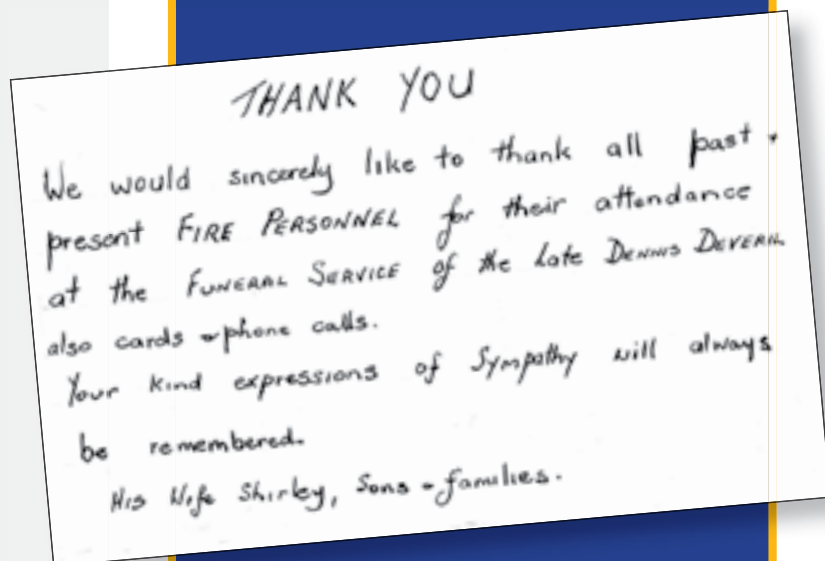 THANK YOU
We would sincerely like to thank all past +
present FIRE PERSONNEL for their attendance
at the FUNERAL SERVICE of the late DENNIS
also cards + phone calls.
Your kind expressions of Sympathy will always
be remembered.
His Wife Shirley, Sons + families.